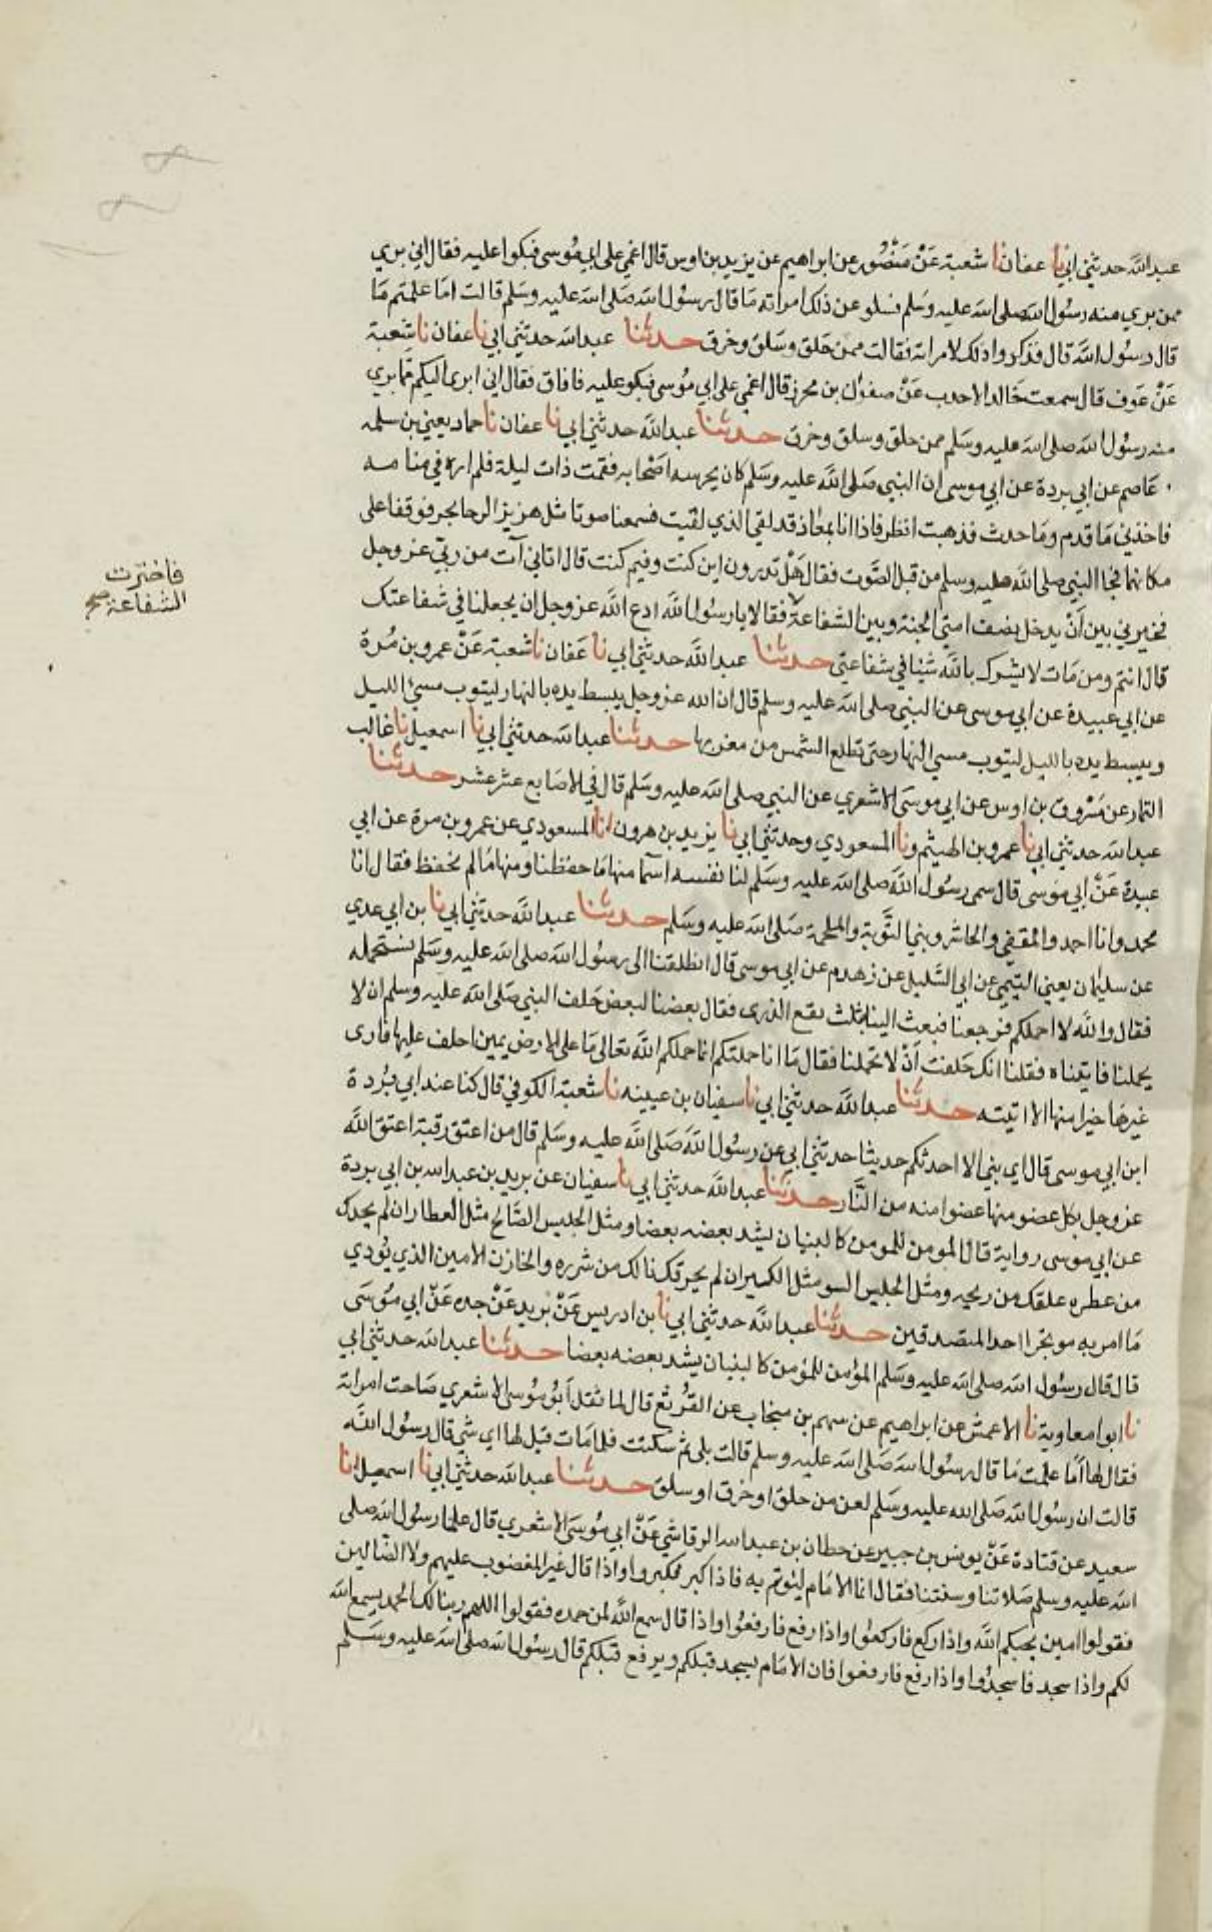 عبد الله حدثني ابي نا عفان نا شعبة عَنْ مَنْصُور عن ابراهيم عن يزيد بن اوس قال اغمي على ابي مُوسى فبكوا عليه فقال اني بري
ممن بري منه رسُول الله صلى الله عليه وسَلم فسلو عن ذلك امراته مَا قال رسُول الله صَلى الله عليه وسَلم قالت امَا علمتم مَا
قال رسُول الله قال فذكروا ذلك لامراته فقالت ممن حَلق وسَلق وخرق حدثنا عبد الله حدثني ابي نا عفان نا شعبة
عَنْ عَوف قال سمعت خَالد الاحدب عَنْ صفوان بن محرز قال اغمي على ابي مُوسى فبكو عليه فافاق فقال اني ابرى اليكم مما بري
منه رسُول الله صلى الله عليه وسَلم ممن حلق وسلق وخرق حدثنا عبد الله حدثني ابي نا عفان نا حماد يعني بن سلمه
عَاصم عن ابي بردة عن ابي موسى ان النبي صَلى الله عليه وسَلم كان يحرسه اصْحابه فقمت ذات ليلة فلم اره في منامه
فاخذني مَا قدم ومَا حدث فذهبت انظر فاذا انا بمعَاذ قد لقي الذي لقيت فسمعنا صوتا مثل هزيز الرحا بحر فوقفا على
مكانهما فجا النبي صلى الله عليه وسلم من قبل الصَّوت فقال هَلْ تدرون اين كنت وفيم كنت قال اتاني آت من ربي عز وجل
فخيرني بين اَنْ يدخل نصف امتي الجنة وبين الشفاعة فقالا يا رسُول الله ادع الله عز وجل ان يجعلنا في شفاعتك
فاخترت
الشفاعة صح
قال انتم ومن مَات لا يشرك بالله شيئا في شفاعتي حدثنا عبد الله حدثني ابي نا عَفان نا شعبة عَنْ عمرو بن مُرة
عن ابي عبيدة عن ابي موسى عن النبي صلى الله عليه وسلم قال ان الله عز وجل يبسط يده بالنهار ليتوب مسيئ الليل
ويبسط يده بالليل ليتوب مسي النهار حتى تطلع الشمس من مغربها حدثنا عبد الله حدثني ابي نا اسمعيل نا غالب
التمار عن مَسْروق بن اوس عن ابي موسَى الاشعري عن النبي صلى الله عليه وسَلم قال في الاصَابع عشر عشر حدثنا
عبد الله حدثني ابي نا عمرو بن الهيثم ونا المسعودي وحدثني ابي نا يزيد بن هرون انا المسعودي عن عمرو بن مرة عن ابي
عبيدة عَنْ ابي موسَى قال سمى رسُول الله صَلى الله عليه وسَلم لنا نفسه اسمآ منها مَا حفظنا ومنها مَا لم نحفظ فقال انا
محمد وانا احمد والمقفي والحاشر ونبي التَّوبة والملحمة صَلى الله عليه وسَلم حدثنا عبد الله حدثني ابي نا بن ابي عدي
عن سليمان يعني التيمي عن ابي السَّليل عن زهدم عن ابي موسى قال انطلقنا الى رسُول الله صَلى الله عليه وسَلم نستحمله
فقال والله لا احملكم فرجعنا فبعث الينا بثلث بقع الذرى فقال بعضنا لبعض حَلف النبي صَلى الله عليه وسلم ان لا
يحملنا فاتيناه فقلنا انك حَلفت اَنْ لا تحملنا فقال مَا انا حملتكم انما حملكم الله تعالى مَا على الارض يمين احلف عليها فارى
غيرهَا خيرا منها الا اتيته حدثنا عبد الله حدثني ابي نا سفيان بن عيينه نا شعبة الكوفي قال كنا عند ابي بُردة
ابن ابي موسى قال اي بني الا احدثكم حديثا حدثني ابي عن رسُول الله صَلى الله عليه وسَلم قال من اعتق رقبة اعتق الله
عز وجل بكل عضو منها عضوا منه من النَّار حدثنا عبد الله حدثني ابي نا سفيان عن بريد بن عبد الله بن ابي بردة
عن ابي موسى رواية قال المومن للمومن كالبنيان يشد بعضه بعضا ومثل الجليس الصَّالح مثل العطار ان لم يحدك
من عطره علقك من ريحه ومثل الجليس السو مثل الكير ان لم يحرقك نالك من شرره والخازن الامين الذي يؤدي
مَا امر به موتجرا احد المتصدقين حدثنا عبد الله حدثني ابي نا بن ادريس عَنْ بريد عَنْ جده عَنْ ابي مُوسَى
قال قال رسُول الله صَلى الله عليه وسَلم المؤمن للمؤمن كالبنيان يشد بعضه بعضا حدثنا عبد الله حدثني ابي
نا ابوا معاوية نا الاعمش عن ابراهيم عن سهم بن منجاب عن القَرْثع قال لما ثقل اَبُو مُوسى الاشعري صَاحت امراته
فقال لها اَمَا علمت مَا قال رسُول الله صَلى الله عليه وسلم قالت بلى ثم سكتت فلما مَات قيل لها اي شي قال رسُول الله
قالت ان رسُول الله صَلى الله عليه وسَلم لعن من حلق او خرق او سلق حدثنا عبد الله حدثني ابي نا اسمعيل انا
سعيد عن قتادة عَنْ يونس بن جبير عن حطان بن عبد الله الرقاشي عَنْ ابي مُوسَى الاشعري قال علمنا رسُول الله صلى
الله عليه وسلم صَلاتنا وسنتنا فقال انما الامَام ليئوتم به فاذا كبر فكبروا واذا قال غير المغضوب عليهم ولا الضالين
فقولوا امين يحبكم الله واذا ركع فاركعُوا واذا رفع فارفعُوا واذا قال سمع الله لمن حمده فقولوا اللهم ربنا لك الحمد يسمع الله
لكم واذا سجد فاسجدُوا واذا رفع فارفعوا فان الامَام يسجد قبلكم ويرفع قبلكم قال رسُول الله صَلى الله عليه وسَلم